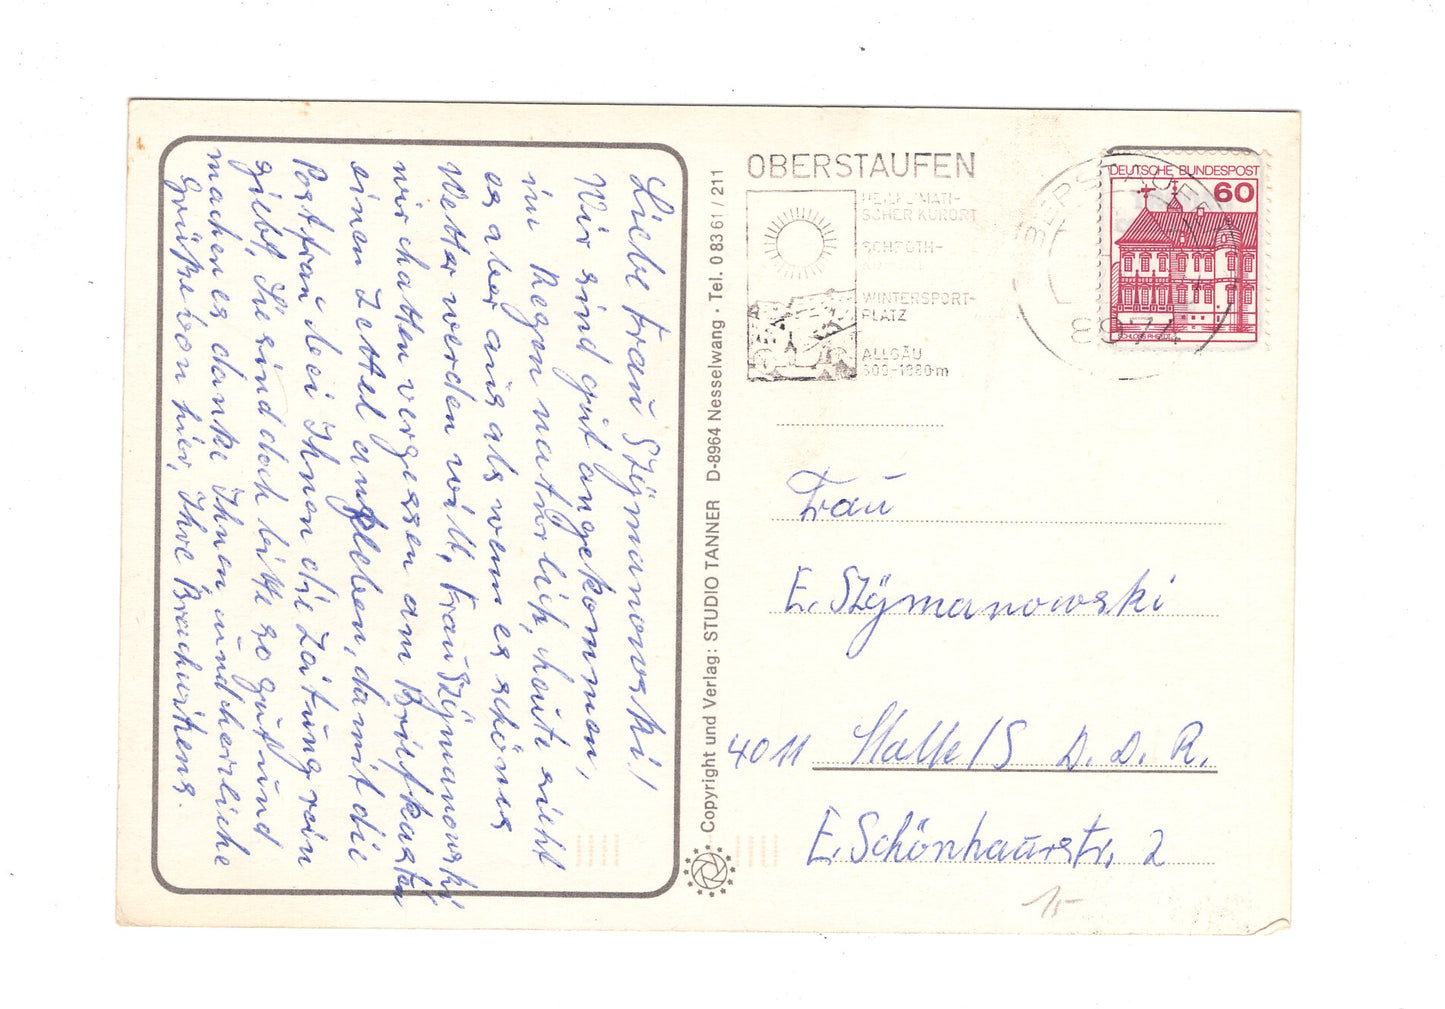 Liebe Frau Szÿmanowski!
Wir sind gut angekommen,
im Regen natürlich, heute sieht
es aber aus als wenn es schönes
Wetter werden will, Frau Szÿmanowski
wir hatten vergessen am Briefkasten
einen Zettel ankleben, damit die
Postfrau bei Ihnen die Zeitung rein
gibt, Sie sind doch bitte so gut und
machen es danke Ihnen und herrliche
Grüße von hier, Ihre
OBERSTAUFEN
HEILKLIMATI-
SCHER KURORT
SCHROTH-
WINTERSPORT-
PLATZ
ALLGÄU
8974
DEUTSCHE BUNDESPOST
60
SCHLOSS RHEYDT
Copyright und Verlag: STUDIO TANNER D-8964 Nesselwang · Tel. 0 83 61 / 211
Frau
E. Szÿmanowski
4011 Halle/S D. D. R.
E. Schönhaarstr. 2
15